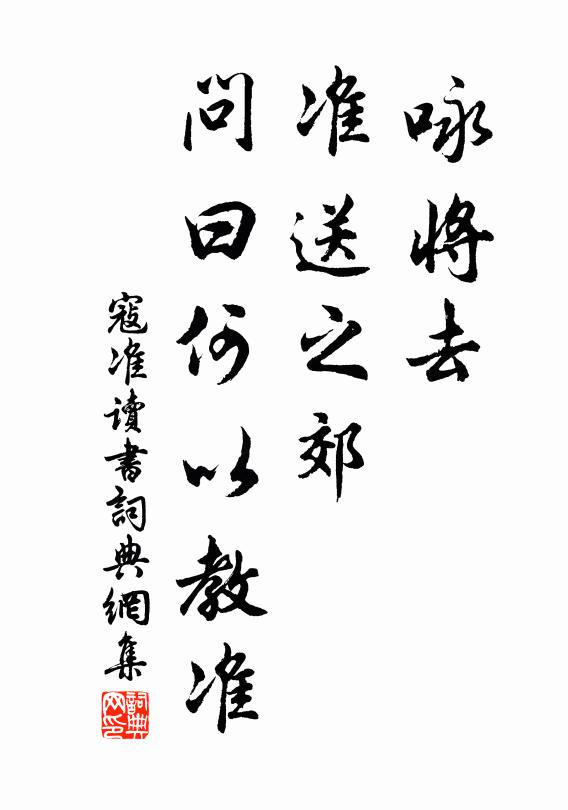 咏將去
准送之郊
問曰何以教准
寇准讀書詞典網集
詞典網印